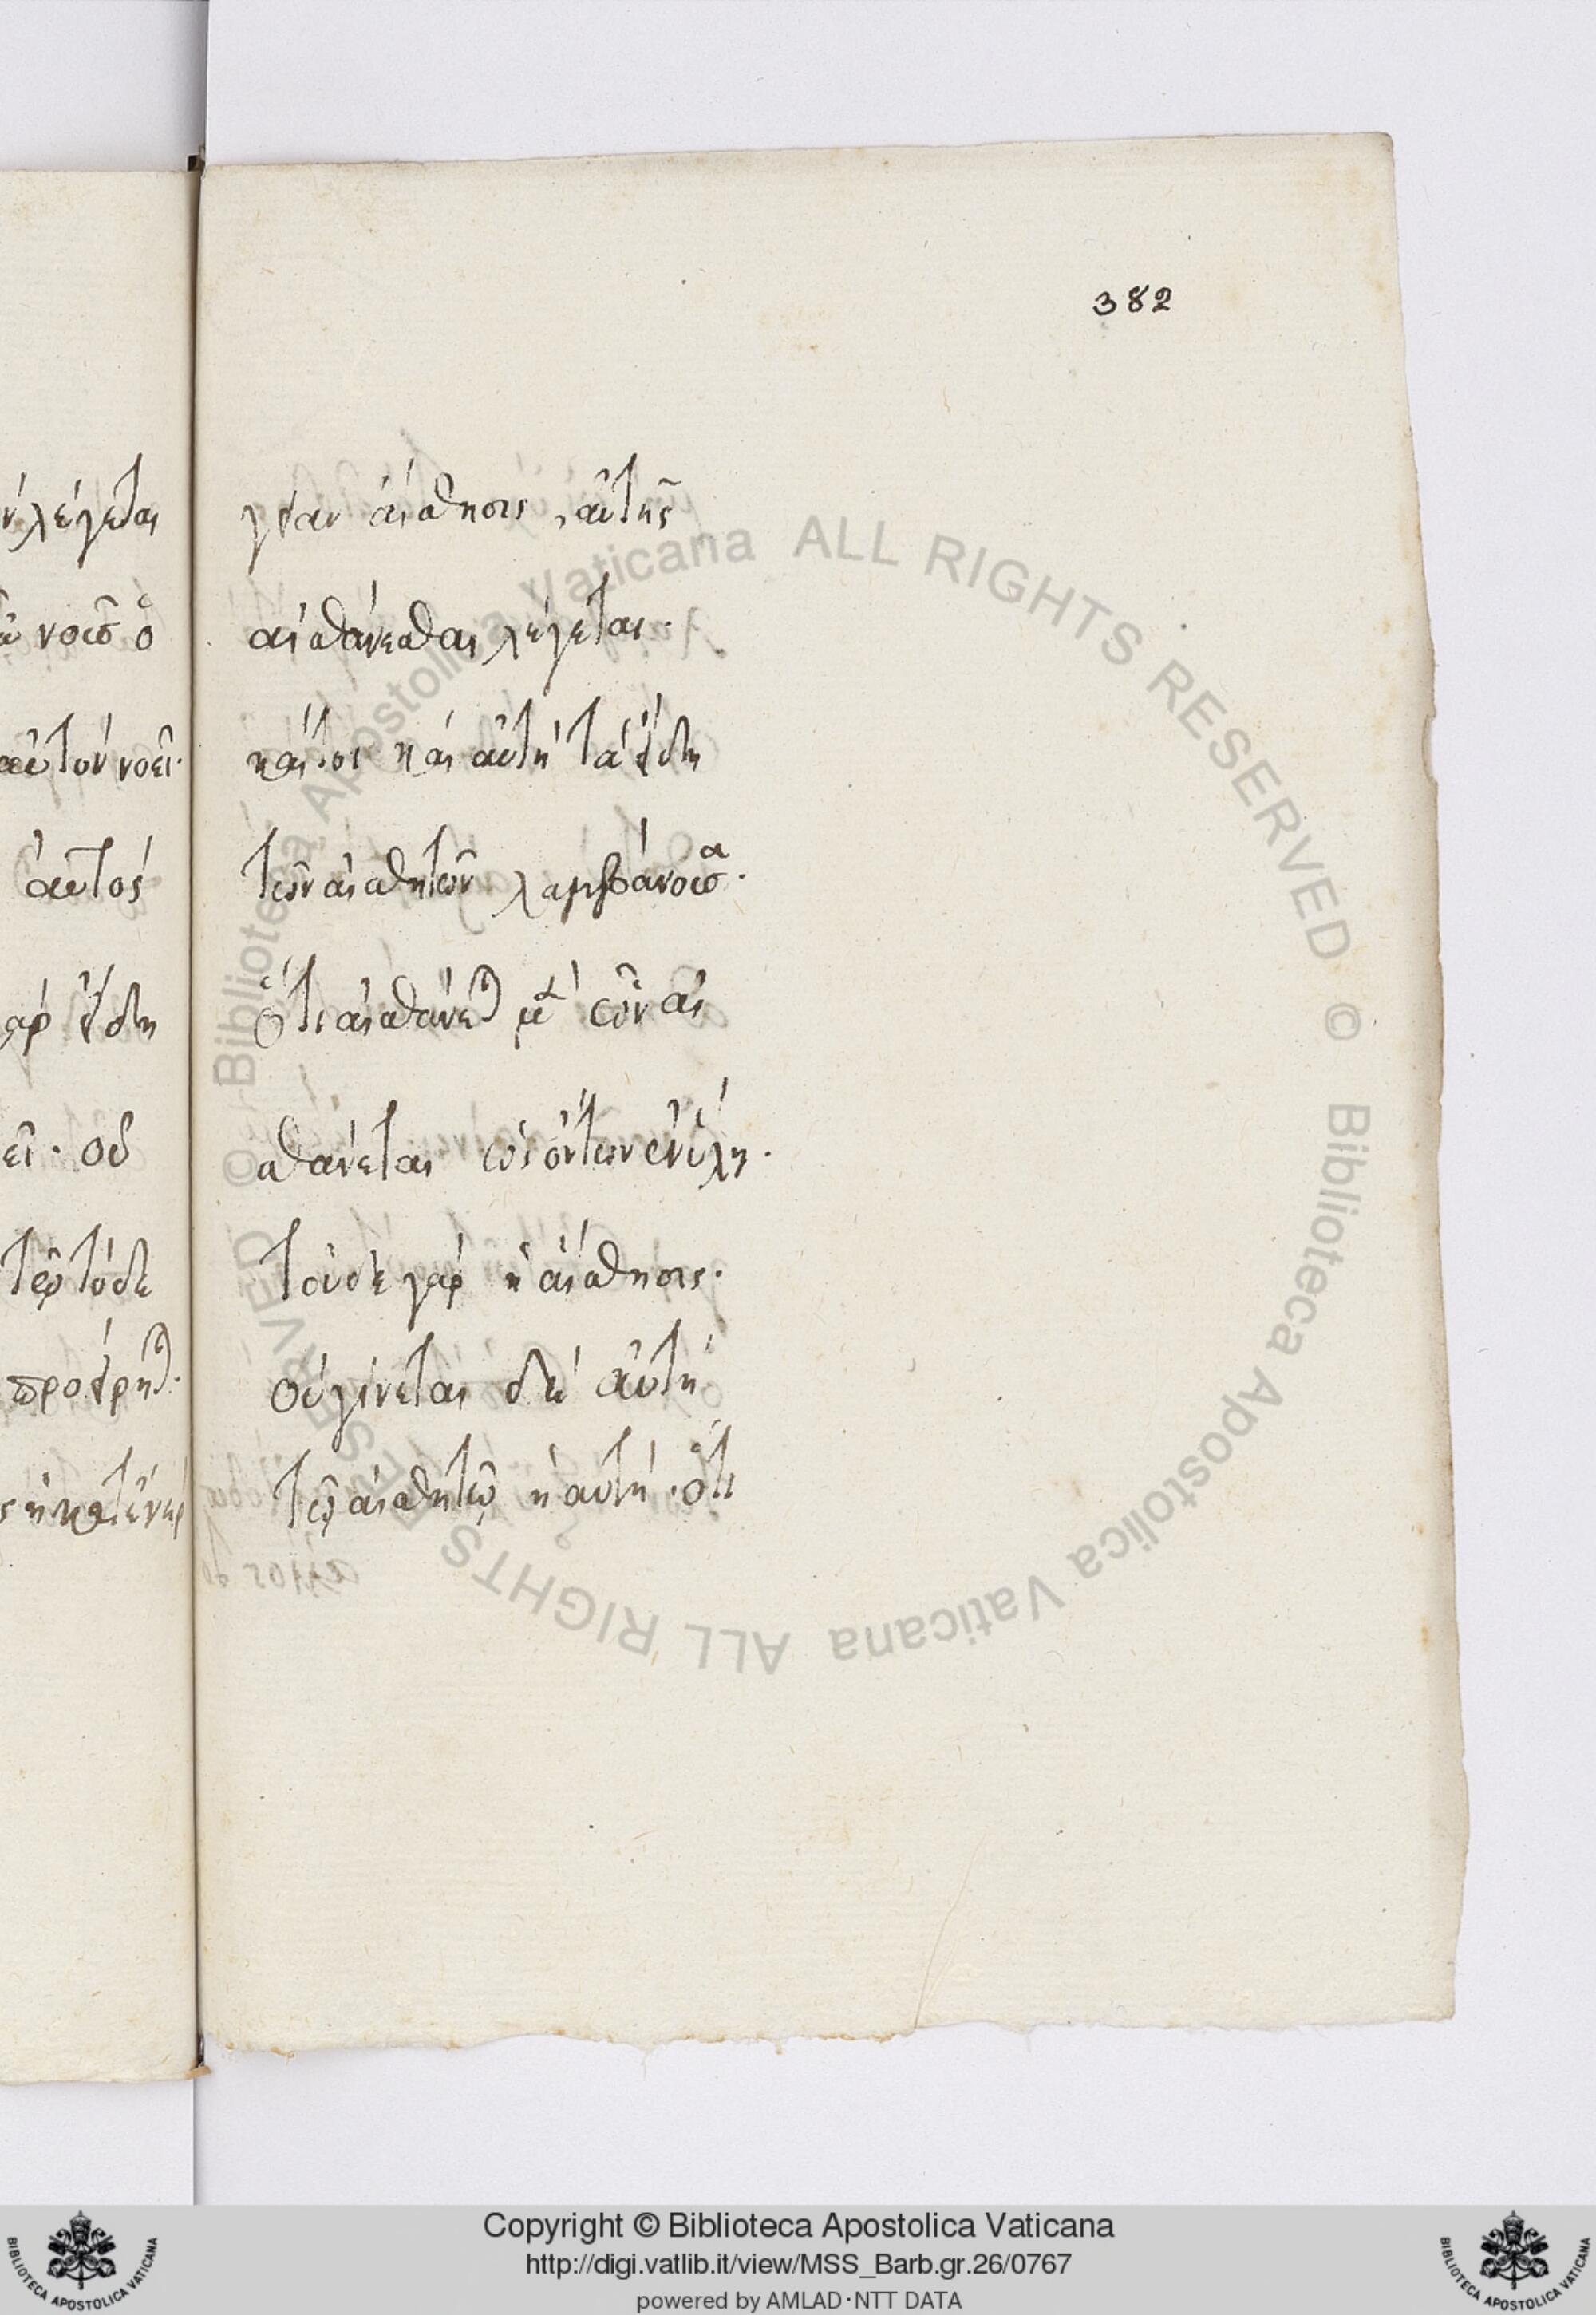 382
ν λέγεται
νοῦς ὁ
αὐτὸν νοεῖ·
αὐτὸς
γὰρ εἴδη
εῖ· οὐ
τῷ τόδε
προείρηται·
γειαν αἴσθησις, αὐτῆς
αἰσθάνεσθαι λέγεται·
καίτοι καὶ αὐτὴ τὰ εἴδη
τῶν αἰσθητῶν λαμβάνουσα·
ὅτι αἰσθάνεται μὲν ὧν αἰ
σθάνεται ὡς ὄντων ἐν ὕλῃ·
τοῦδε γὰρ ἡ αἴσθησις·
οὐ γίνεται δὲ αὐτὴ
τῷ αἰσθητῷ ἡ αὐτὴ· ὅτι
© Biblioteca Apostolica Vaticana ALL RIGHTS RESERVED © Biblioteca Apostolica Vaticana ALL RIGHTS RESERVED
BIBLIOTECA APOSTOLICA VATICANA
Copyright © Biblioteca Apostolica Vaticana
http://digi.vatlib.it/view/MSS_Barb.gr.26/0767
powered by AMLAD·NTT DATA
BIBLIOTECA APOSTOLICA VATICANA